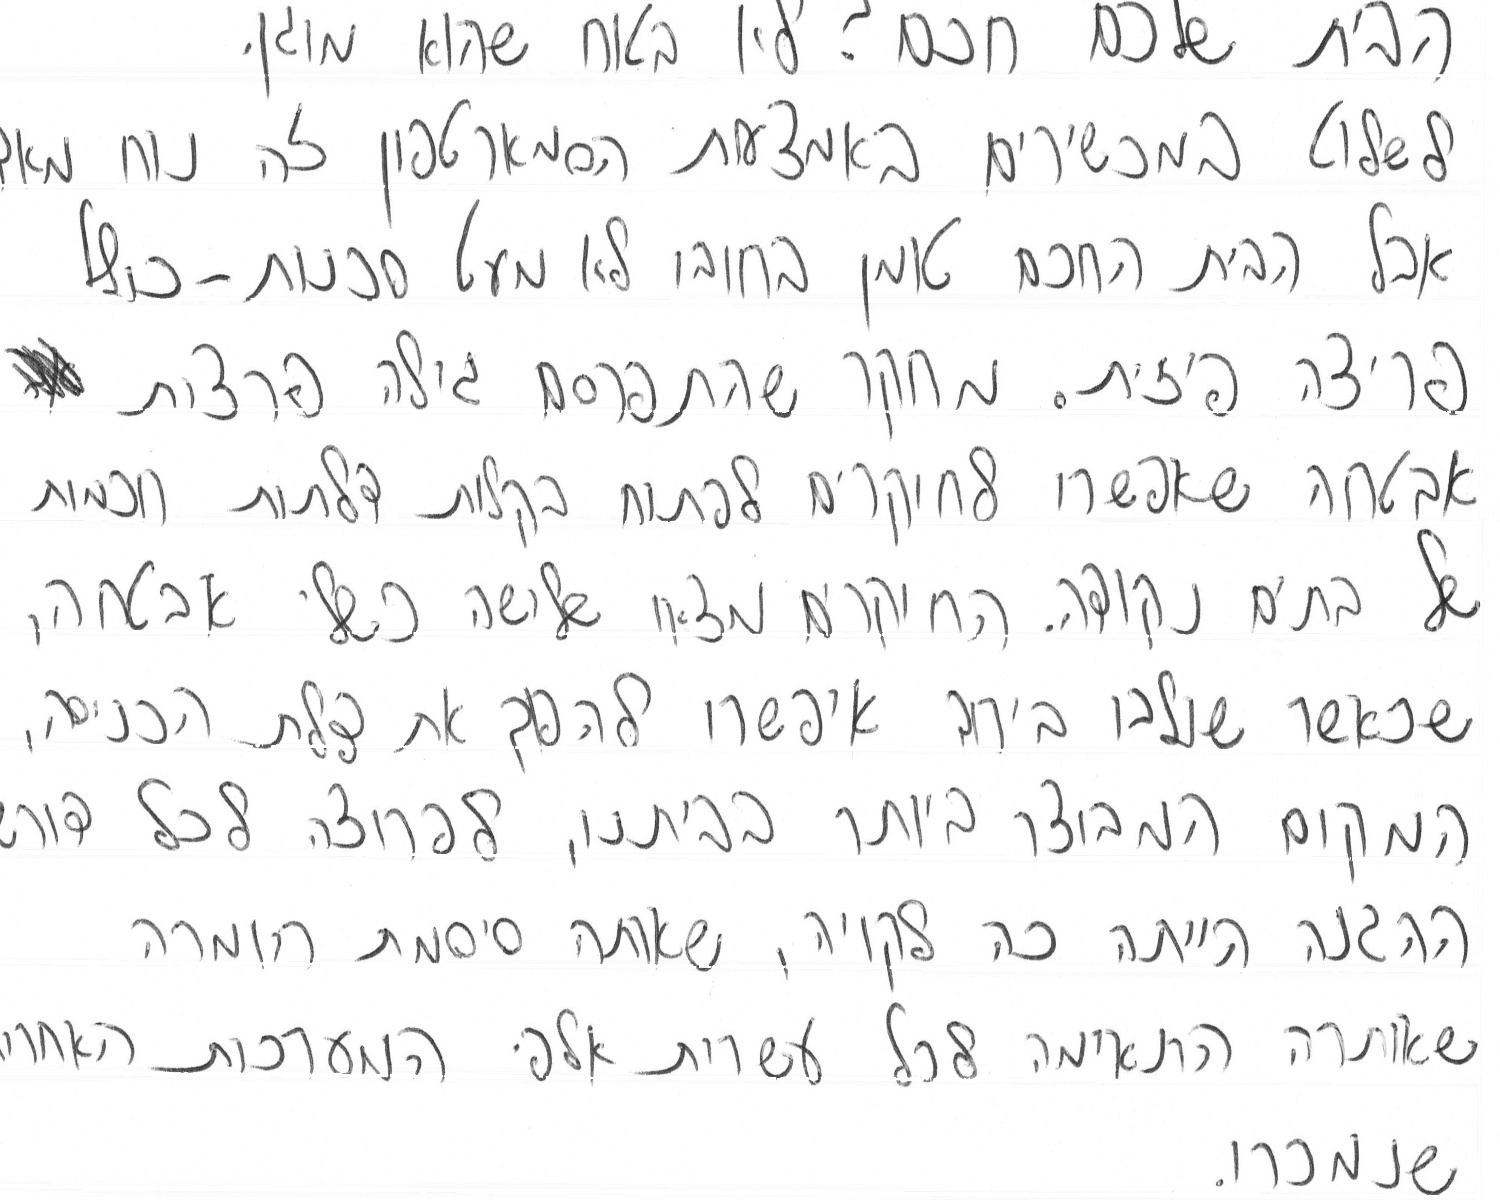 הבית שלכם חכם? לא בטוח שהוא מוגן.
לשלוט במכשירים באמצעות הסמארטפון זה נוח מאד
אבל הבית החכם טומן בחובו לא מעט סכנות - כולל
פריצה פיזית. מחקר שהתפרסם גילה פרצות
אבטחה שאפשרו לחוקרים לפתוח בקלות דלתות חכמות
של בתים נקודה. החוקרים מצאו שלושה כשלי אבטחה,
שכאשר שולבו ביחד איפשרו להפוך את דלת הכניסה,
המקום המבוצר ביותר בביתנו, לפרוצה לכל דורש
ההגנה הייתה כה לקויה, שאותה סיסמת חומרה
שאותרה התאימה לכל עשרות אלפי המערכות האחרי
שנמכרו.